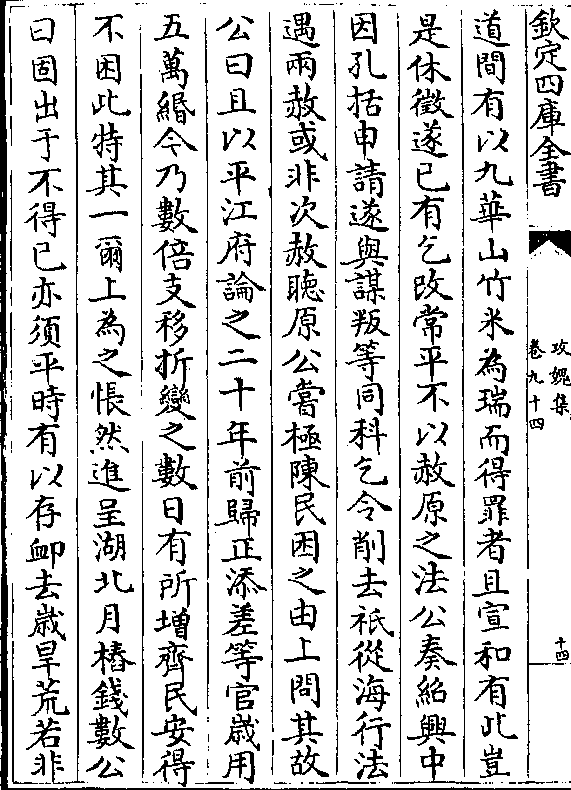 欽定四庫全書
攻媿集
卷九十四
十四
道間有以九華山竹米為瑞而得罪者且宣和有此豈
是休徵遂已有乞改常平不以赦原之法公奏紹興中
因孔括申請遂與謀叛等同科乞令削去祇從海行法
遇兩赦或非次赦聽原公嘗極陳民困之由上問其故
公曰且以平江府論之二十年前歸正添差等官歲用
五萬緡今乃數倍支移折變之數日有所增齊民安得
不困此特其一爾上為之悵然進呈湖北月樁錢數公
曰固出于不得已亦須平時有以存卹去歲旱荒若非